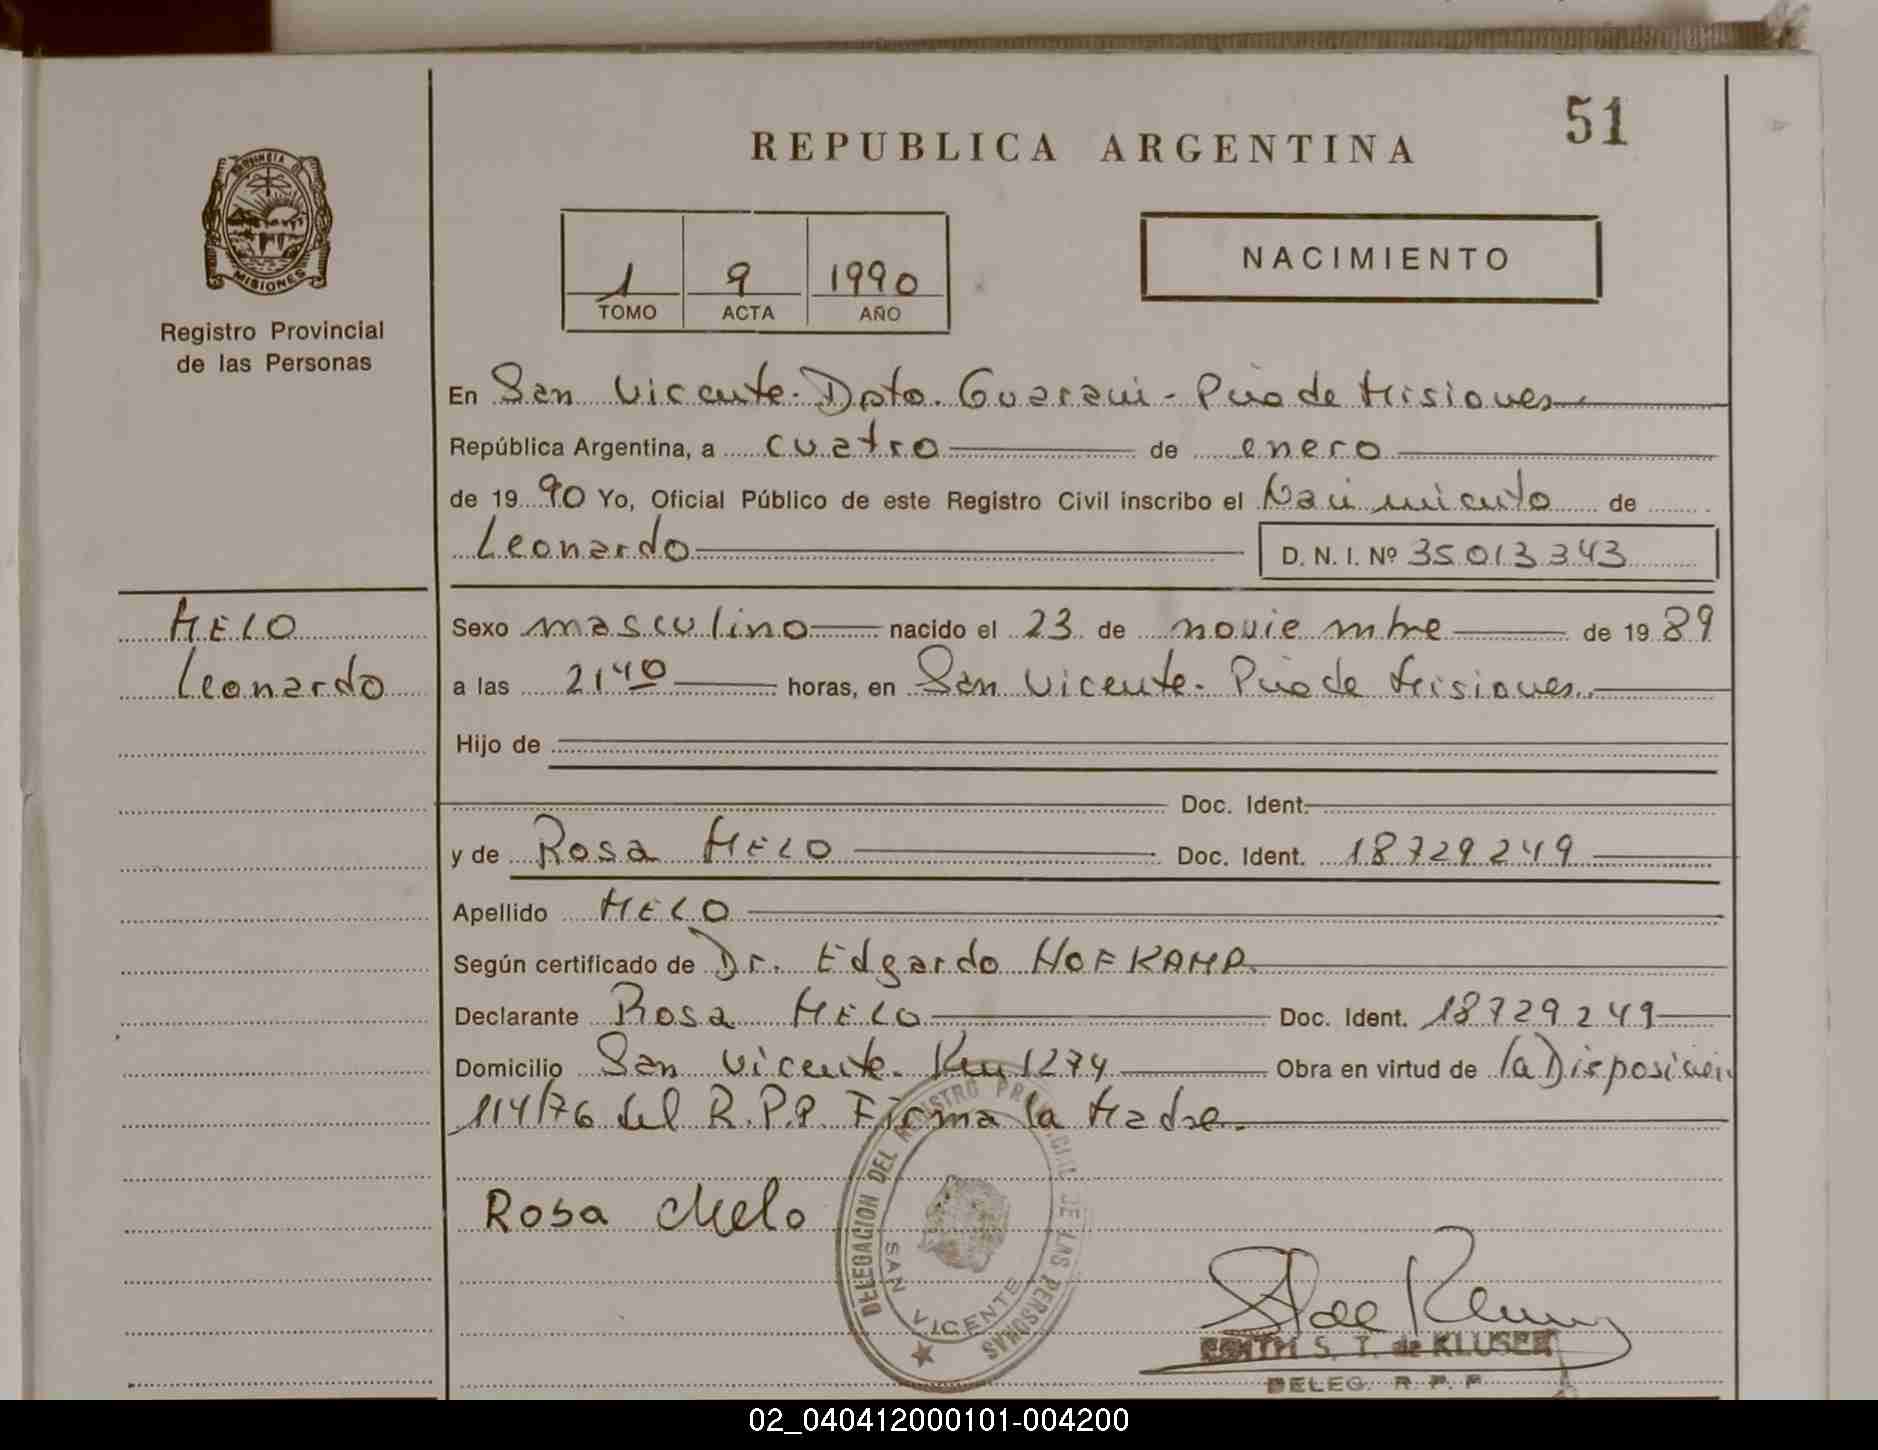 51
REPUBLICA ARGENTINA
PROVINCIA DE
MISIONES
Registro Provincial
de las Personas
1 9 1990
TOMO ACTA AÑO
NACIMIENTO
En San Vicente. Dpto. Guaraní - Pcia de Misiones
República Argentina, a cuatro de enero
de 19 90 Yo, Oficial Público de este Registro Civil inscribo el Nacimiento de
Leonardo D. N. I. Nº 35 013 343
MELO
Leonardo
Sexo masculino nacido el 23 de noviembre de 19 89
a las 21 40 horas, en San Vicente. Pcia de Misiones.
Hijo de
Doc. Ident.
y de Rosa MELO Doc. Ident. 18 729 249
Apellido MELO
Según certificado de Dr. Edgardo HOFKAMP.
Declarante Rosa MELO Doc. Ident. 18 729 249
Domicilio San Vicente. Km 1274 Obra en virtud de la Disposición
114/76 del R.P.P. Firma la Madre.
Rosa Melo
DELEGACION DEL REGISTRO PROVINCIAL DE LAS PERSONAS
SAN VICENTE
EDITH S. T. de KLUSER
DELEG. R. P. P.
02_040412000101-004200